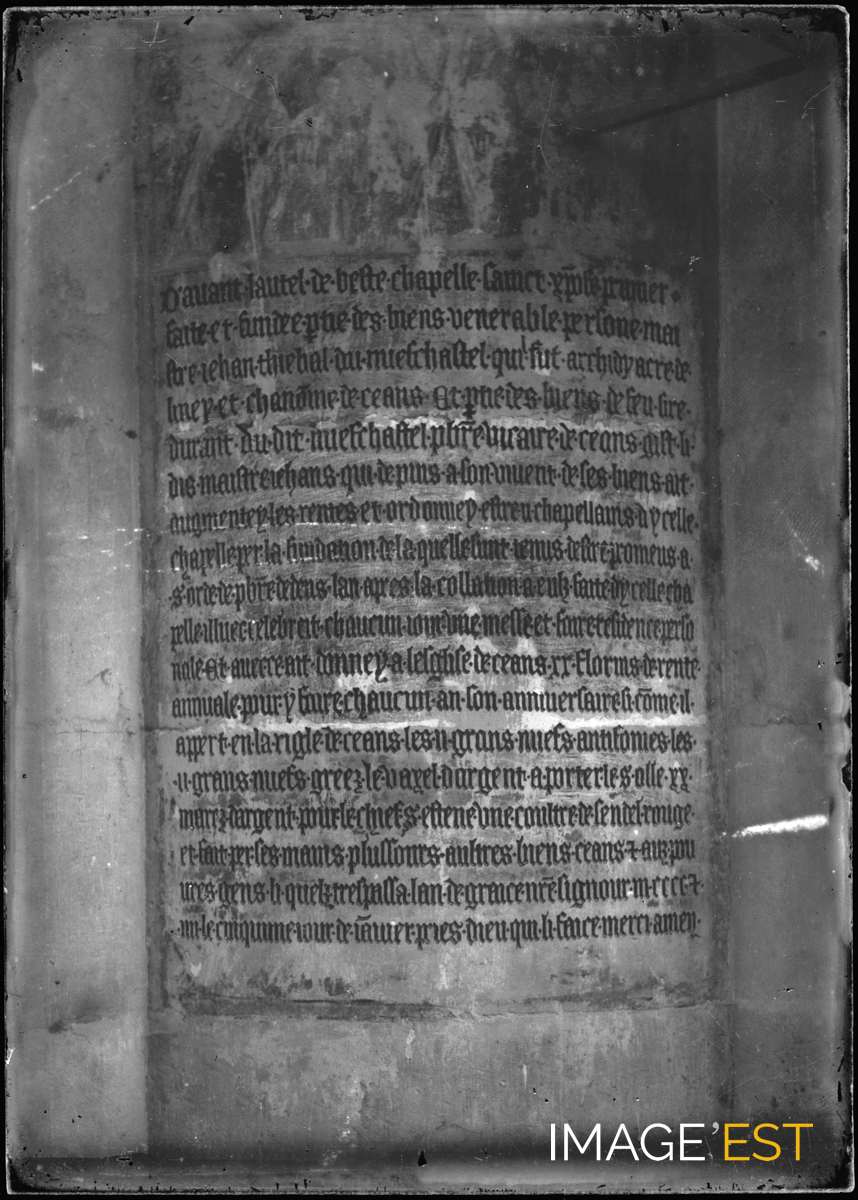 Davant·lautel·de·ceste·chapelle·sainct·xp̄ofe·prumier·
faite·et·fundee·ptie·des·biens·venerable·persone·mai
stre·iehan·thiebal·du·nuefchastel·qui·fut·archidyacre·de·
liney·et·chanōine·de·ceans·Et·ptie·des·biens·de·feu·sire·
durant·du·dit·nuefchastel·pb̄re·vicaire·de·ceans·gist·li·
dis·maistre·iehans·qui·depuis·a·son·vivent·de·ses·biens·ait·
augmentey·les·rentes·et·ordonney·estre·u·chapellains·dycelle·
chapelle·per·la·fundation·de·laquelle·sunt·tenus·destre·promeus·a·
s·orde·de·pb̄re·dedens·lan·apres·la·collation·a·eulz·faite·dycelle·cha
pelle·illuec·celebreit·chaucun·iour·une·messe·et·faire·residence·perso
nale·Et·aurec·ceait·donney·a·lesglise·de·ceans·xx·florins·de·rente·
annuale·pour·y·faire·chaucun·an·son·anniversaire·si·cōme·il·
appert·en·la·rigle·de·ceans·les·ii·grans·nuefs·antifonies·les·
ii·grans·nuefs·greez·le·vaxel·dargent·a·porter·le·s·olle·xx·
marcz·dargent·pour·le·chief·s·estene·une·coultre·de·sendel·rouge·
et·fait·per·ses·mains·plussours·aultres·biens·ceans·⁊·aux·pou
vres·gens·li·quelz·trespassa·lan·de·graice·nr̄e·signour·m·cccc·⁊·
iiii·le·cinquime·iour·de·iāvier·pries·dieu·qui·li·faice·merci·amen·
IMAGE'EST